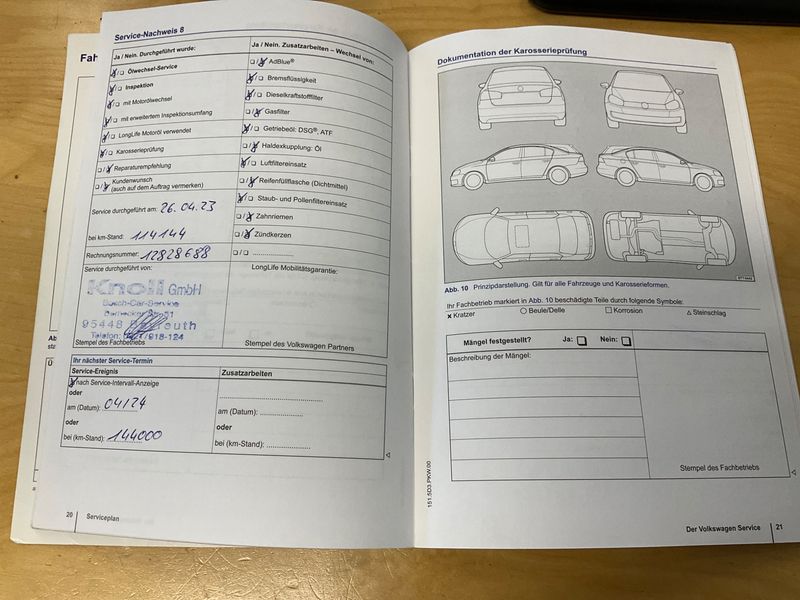 Fah
Service-Nachweis 8
Ja / Nein. Durchgeführt wurde:
Ja / Nein. Zusatzarbeiten – Wechsel von:
Ölwechsel-Service
AdBlue®
Inspektion
Bremsflüssigkeit
mit Motorölwechsel
Dieselkraftstofffilter
mit erweitertem Inspektionsumfang
Gasfilter
LongLife Motoröl verwendet
Getriebeöl: DSG®, ATF
Karosserieprüfung
Haldexkupplung: Öl
Reparaturempfehlung
Luftfiltereinsatz
Kundenwunsch
(auch auf dem Auftrag vermerken)
Reifenfüllflasche (Dichtmittel)
Staub- und Pollenfiltereinsatz
Service durchgeführt am: 26.04.23
Zahnriemen
bei km-Stand: 114144
Zündkerzen
Rechnungsnummer: 12828688
Service durchgeführt von:
LongLife Mobilitätsgarantie:
Knoll GmbH
Bosch-Car-Service
95448 Bayreuth
Stempel des Fachbetriebs
Stempel des Volkswagen Partners
Ihr nächster Service-Termin
Service-Ereignis
Zusatzarbeiten
nach Service-Intervall-Anzeige
oder
am (Datum): 04/24
am (Datum):
oder
oder
bei (km-Stand): 144000
bei (km-Stand):
20 Serviceplan
Dokumentation der Karosserieprüfung
Abb. 10 Prinzipdarstellung. Gilt für alle Fahrzeuge und Karosserieformen.
Ihr Fachbetrieb markiert in Abb. 10 beschädigte Teile durch folgende Symbole:
x Kratzer ○ Beule/Delle □ Korrosion △ Steinschlag
Mängel festgestellt? Ja: □ Nein: □
Beschreibung der Mängel:
Stempel des Fachbetriebs
151.5D3.PKW.00
Der Volkswagen Service 21